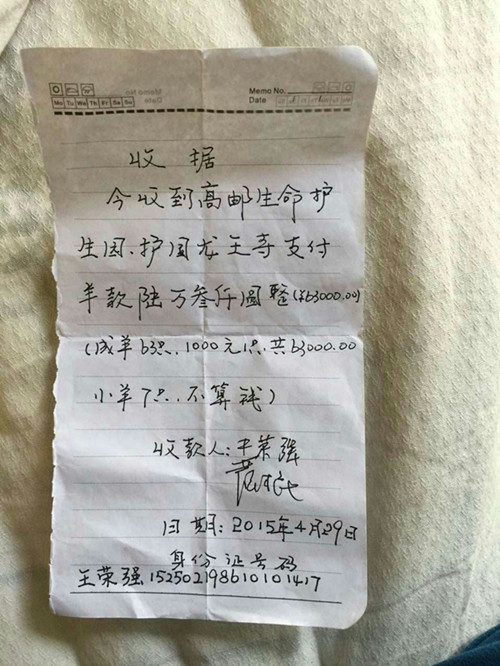 Memo No.
Mo Tu We Th Fr Sa Su
Date
收据
今收到高邮生命护
生园、护国龙王寺支付
羊款陆万叁仟圆整(¥63000.00)
(成羊63只、1000元/只、共63000.00
小羊7只、不算钱)
收款人:王荣强
日期:2015年4月29日
身份证号码
王荣强 152502198610101417